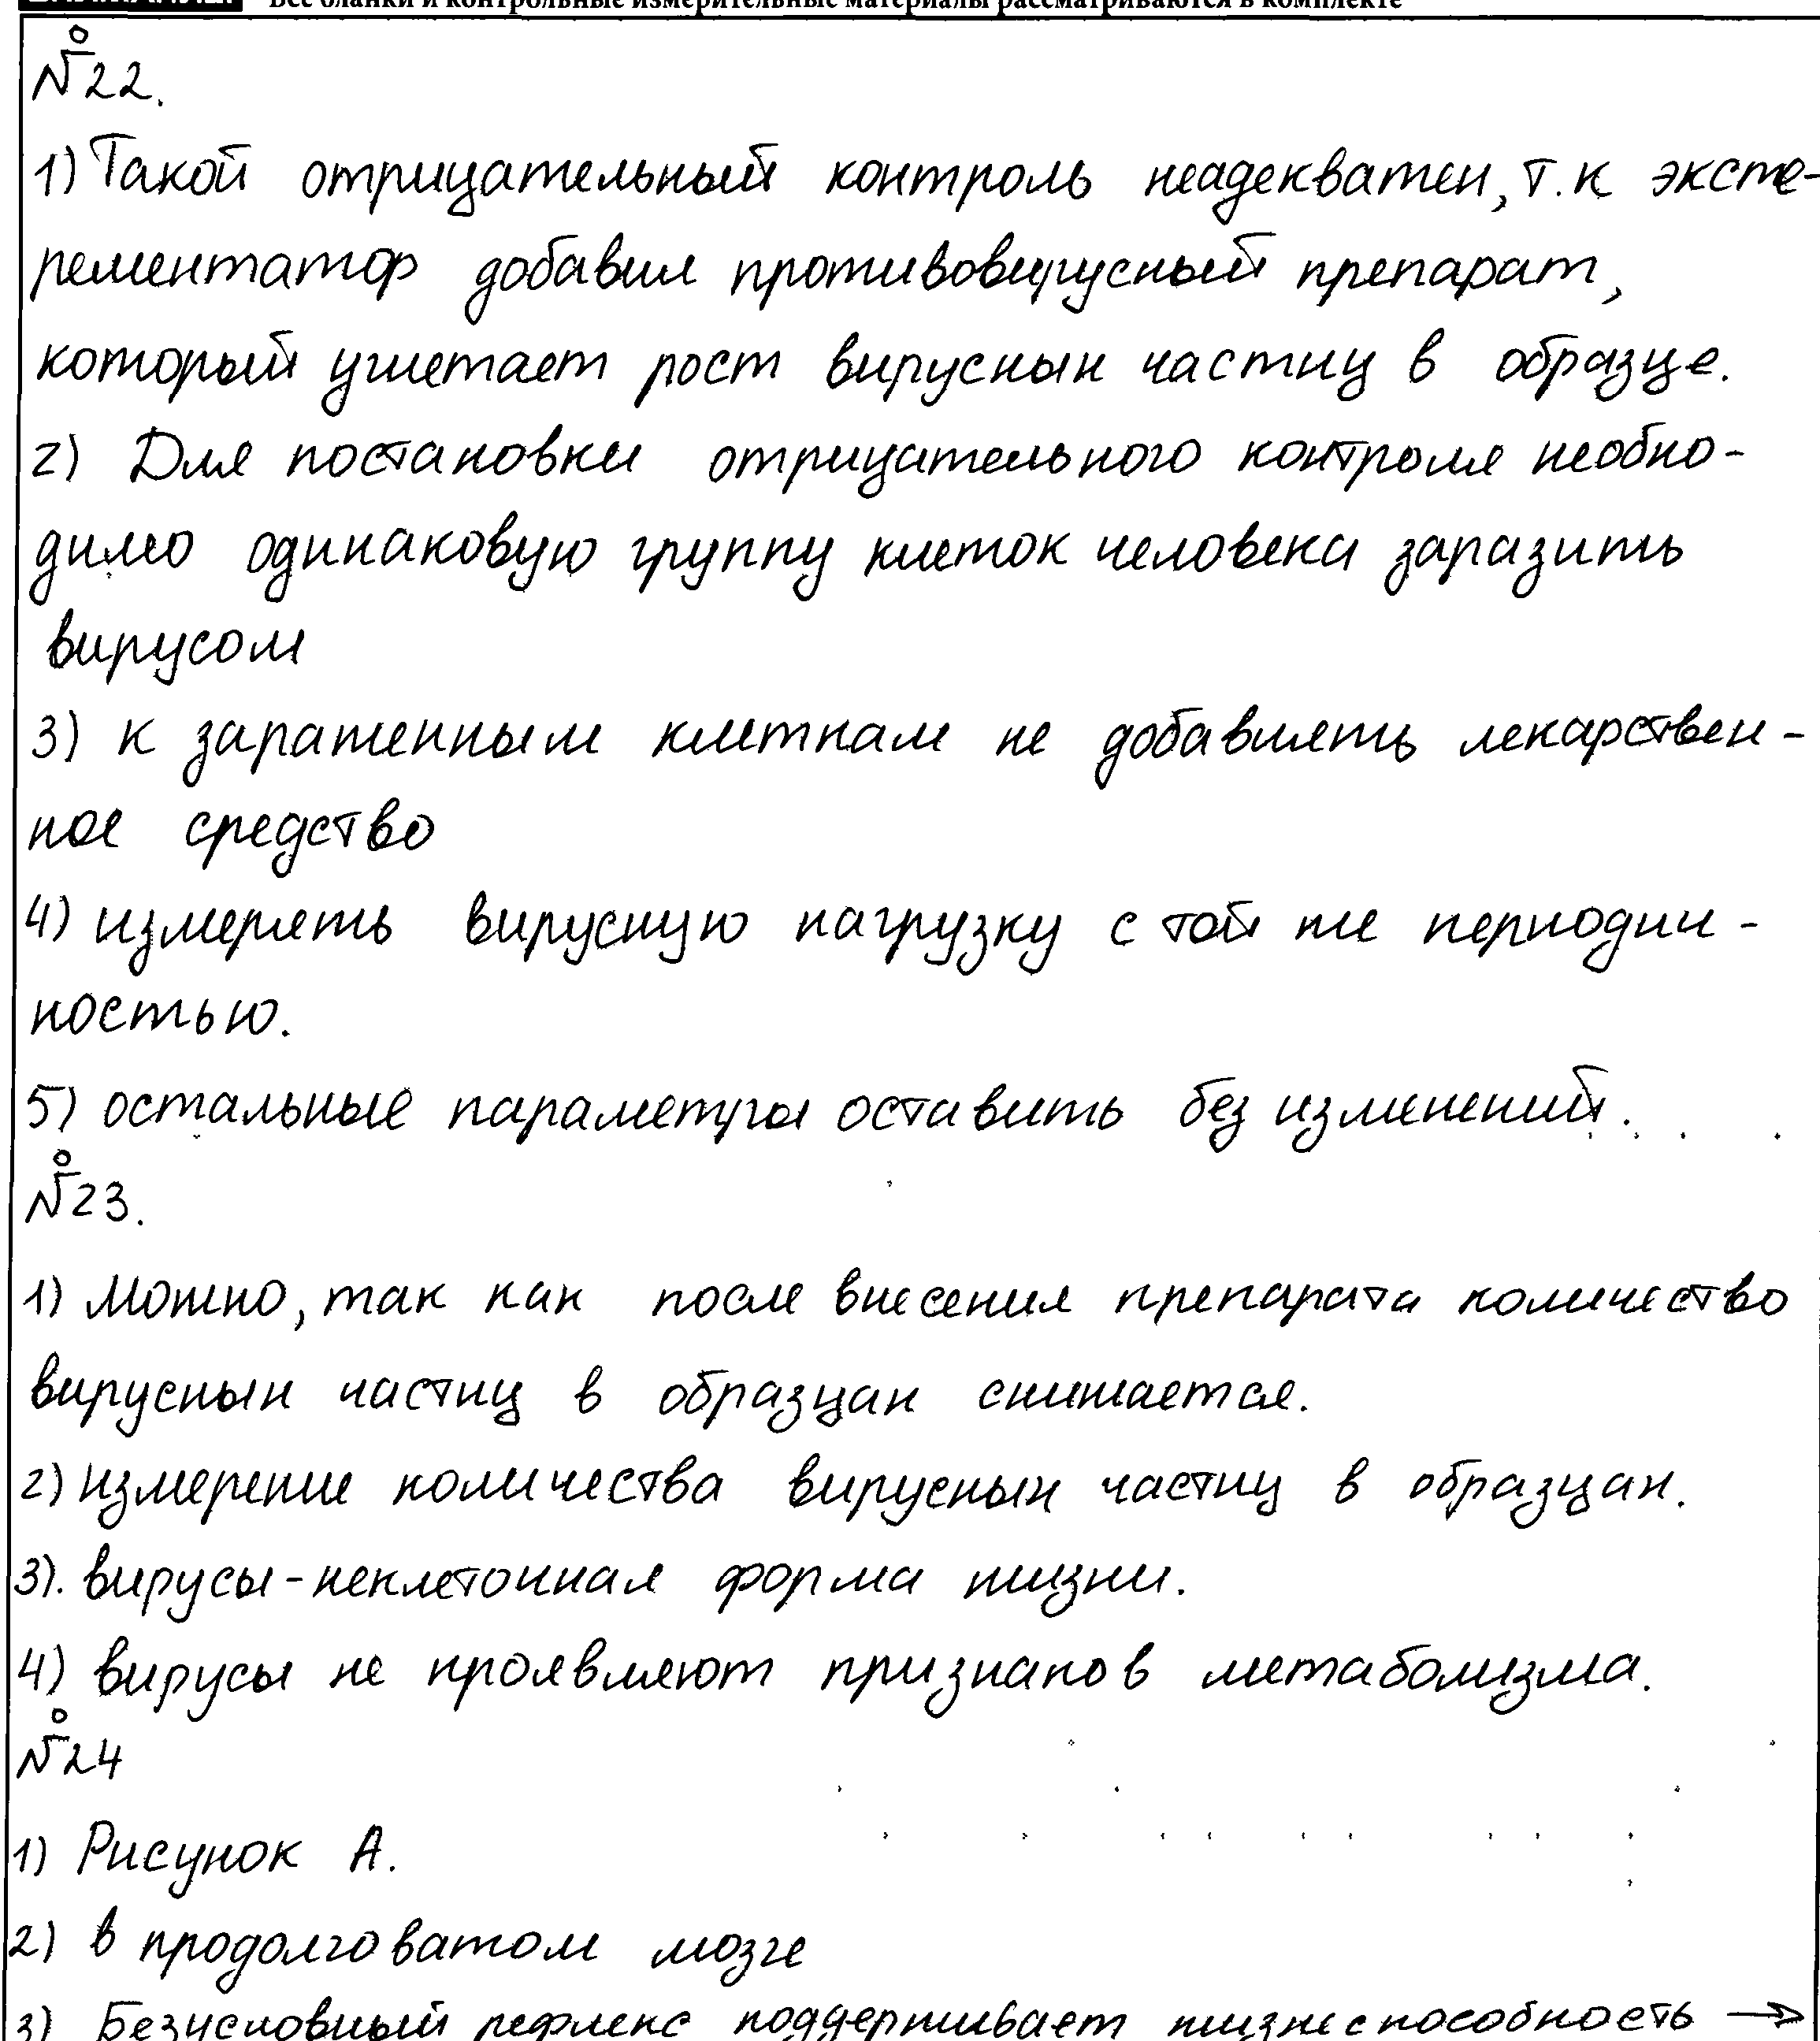 Все бланки и контрольные измерительные материалы рассматриваются в комплекте
№22.
1) Такой отрицательный контроль неадекватен, т.к экспе-
рементатор добавил противовирусный препарат,
который угнетает рост вирусных частиц в образце.
2) Для постановки отрицательного контроля необхо-
димо одинаковую группу клеток человека заразить
вирусом
3) к зараженным клеткам не добавлять лекарствен-
ное средство
4) измерять вирусную нагрузку с той же периодич-
ностью.
5) остальные параметры оставить без изменений.
№23.
1) Можно, так как после внесения препарата количество
вирусных частиц в образцах снижается.
2) измерение количества вирусных частиц в образцах.
3). вирусы - неклеточная форма жизни.
4) вирусы не проявляют признаков метаболизма.
№24
1) Рисунок А.
2) в продолговатом мозге
3) Безусловный рефлекс поддерживает жизнеспособность →